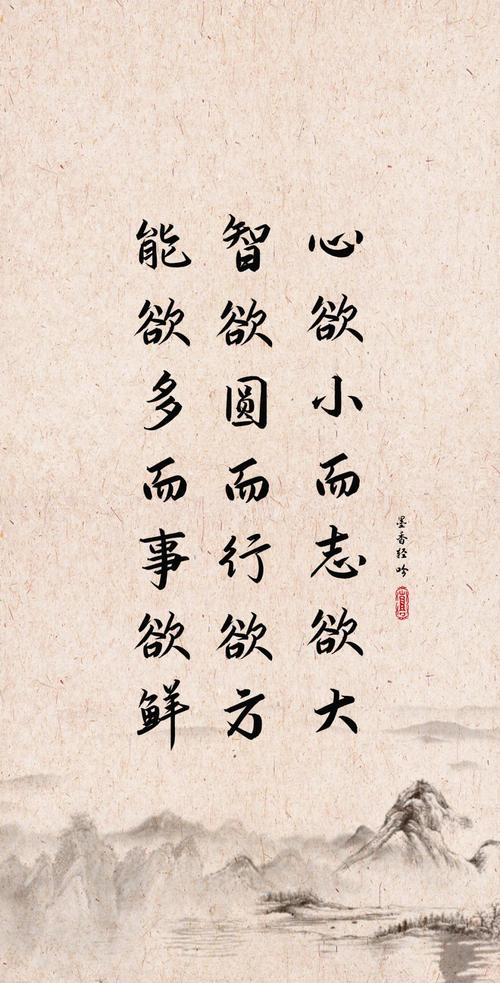 心欲小而志欲大
智欲圆而行欲方
能欲多而事欲鲜
墨香轻吟